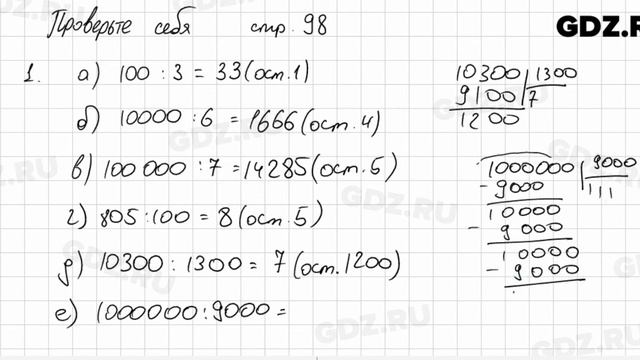 Проверьте себя стр. 98
GDZ.RU
1. а) 100 : 3 = 33 (ост. 1)
б) 10000 : 6 = 1666 (ост. 4)
в) 100 000 : 7 = 14285 (ост. 5)
г) 805 : 100 = 8 (ост. 5)
д) 10300 : 1300 = 7 (ост. 1200)
е) 1000000 : 9000 =
10300 1300
9100 7
1200
1000000 9000
- 9000 111
10000
- 9000
10000
- 9000
GDZ.RU
GDZ.RU
GDZ.RU